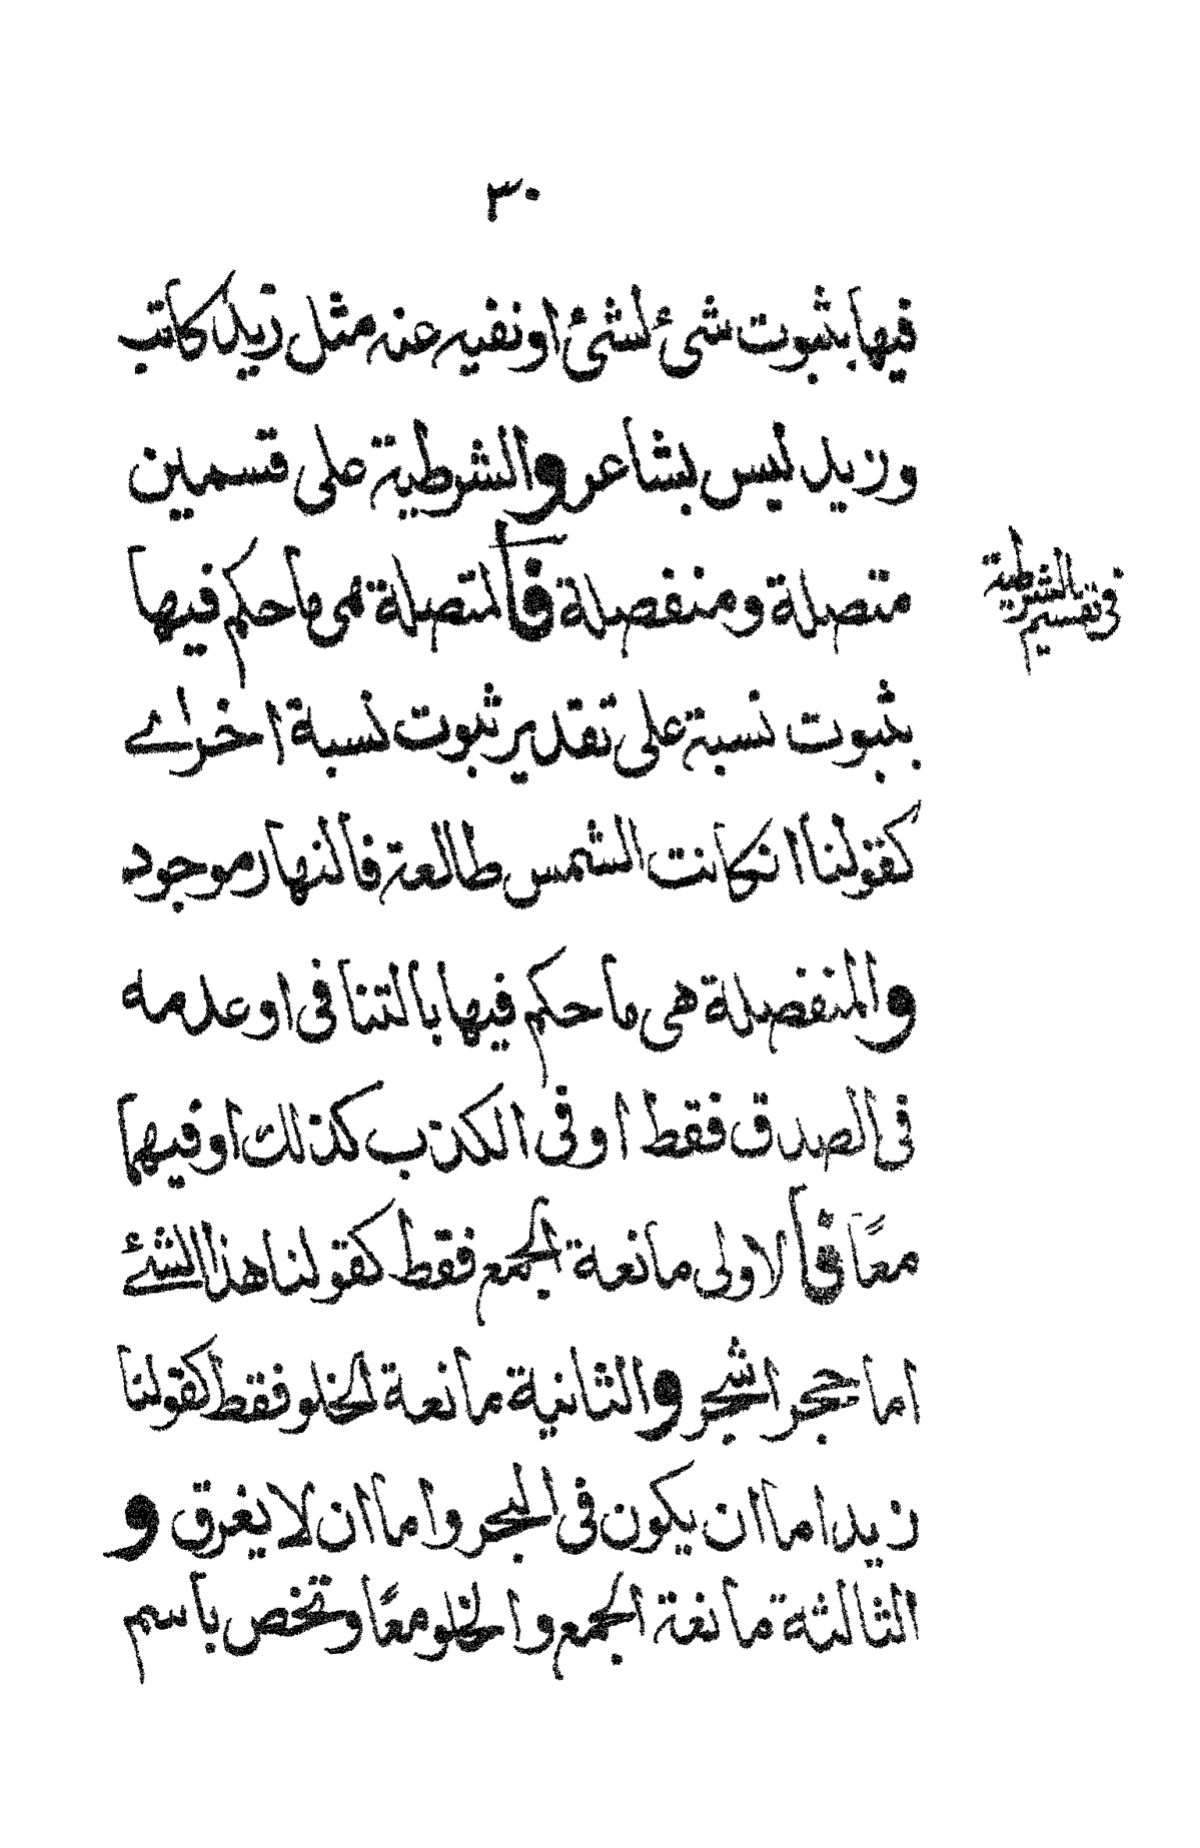 ٣٠
فيها بثبوت شئ لشئ او نفيه عنه مثل زيد كاتب
وزيد ليس بشاعر والشرطية على قسمين
متصلة ومنفصلة فالمتصلة هى ما حكم فيها
فى تقسيم الشرطية
بثبوت نسبة على تقدير ثبوت نسبة اخراے
كقولنا انكانت الشمس طالعة فالنهار موجود
والمنفصلة هى ما حكم فيها بالتنافى او عدمه
فى الصدق فقط او فى الكذب كذلك او فيهما
معًا فالاولى مانعة الجمع فقط كقولنا هذا الشئے
اما حجر اشجر والثانية مانعة الخلو فقط كقولنا
زيد اما ان يكون فى البحر واما ان لا يغرق و
الثالثة مانعة الجمع والخلو معًا وتخص باسم